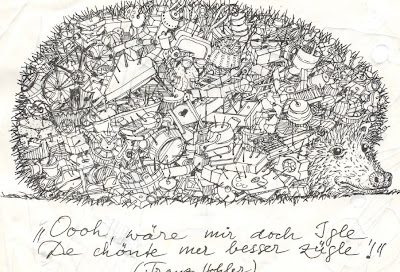 „Oooh, wäre mir doch Igle
De chönte mer besser zügle!"
(Franz Hohler)